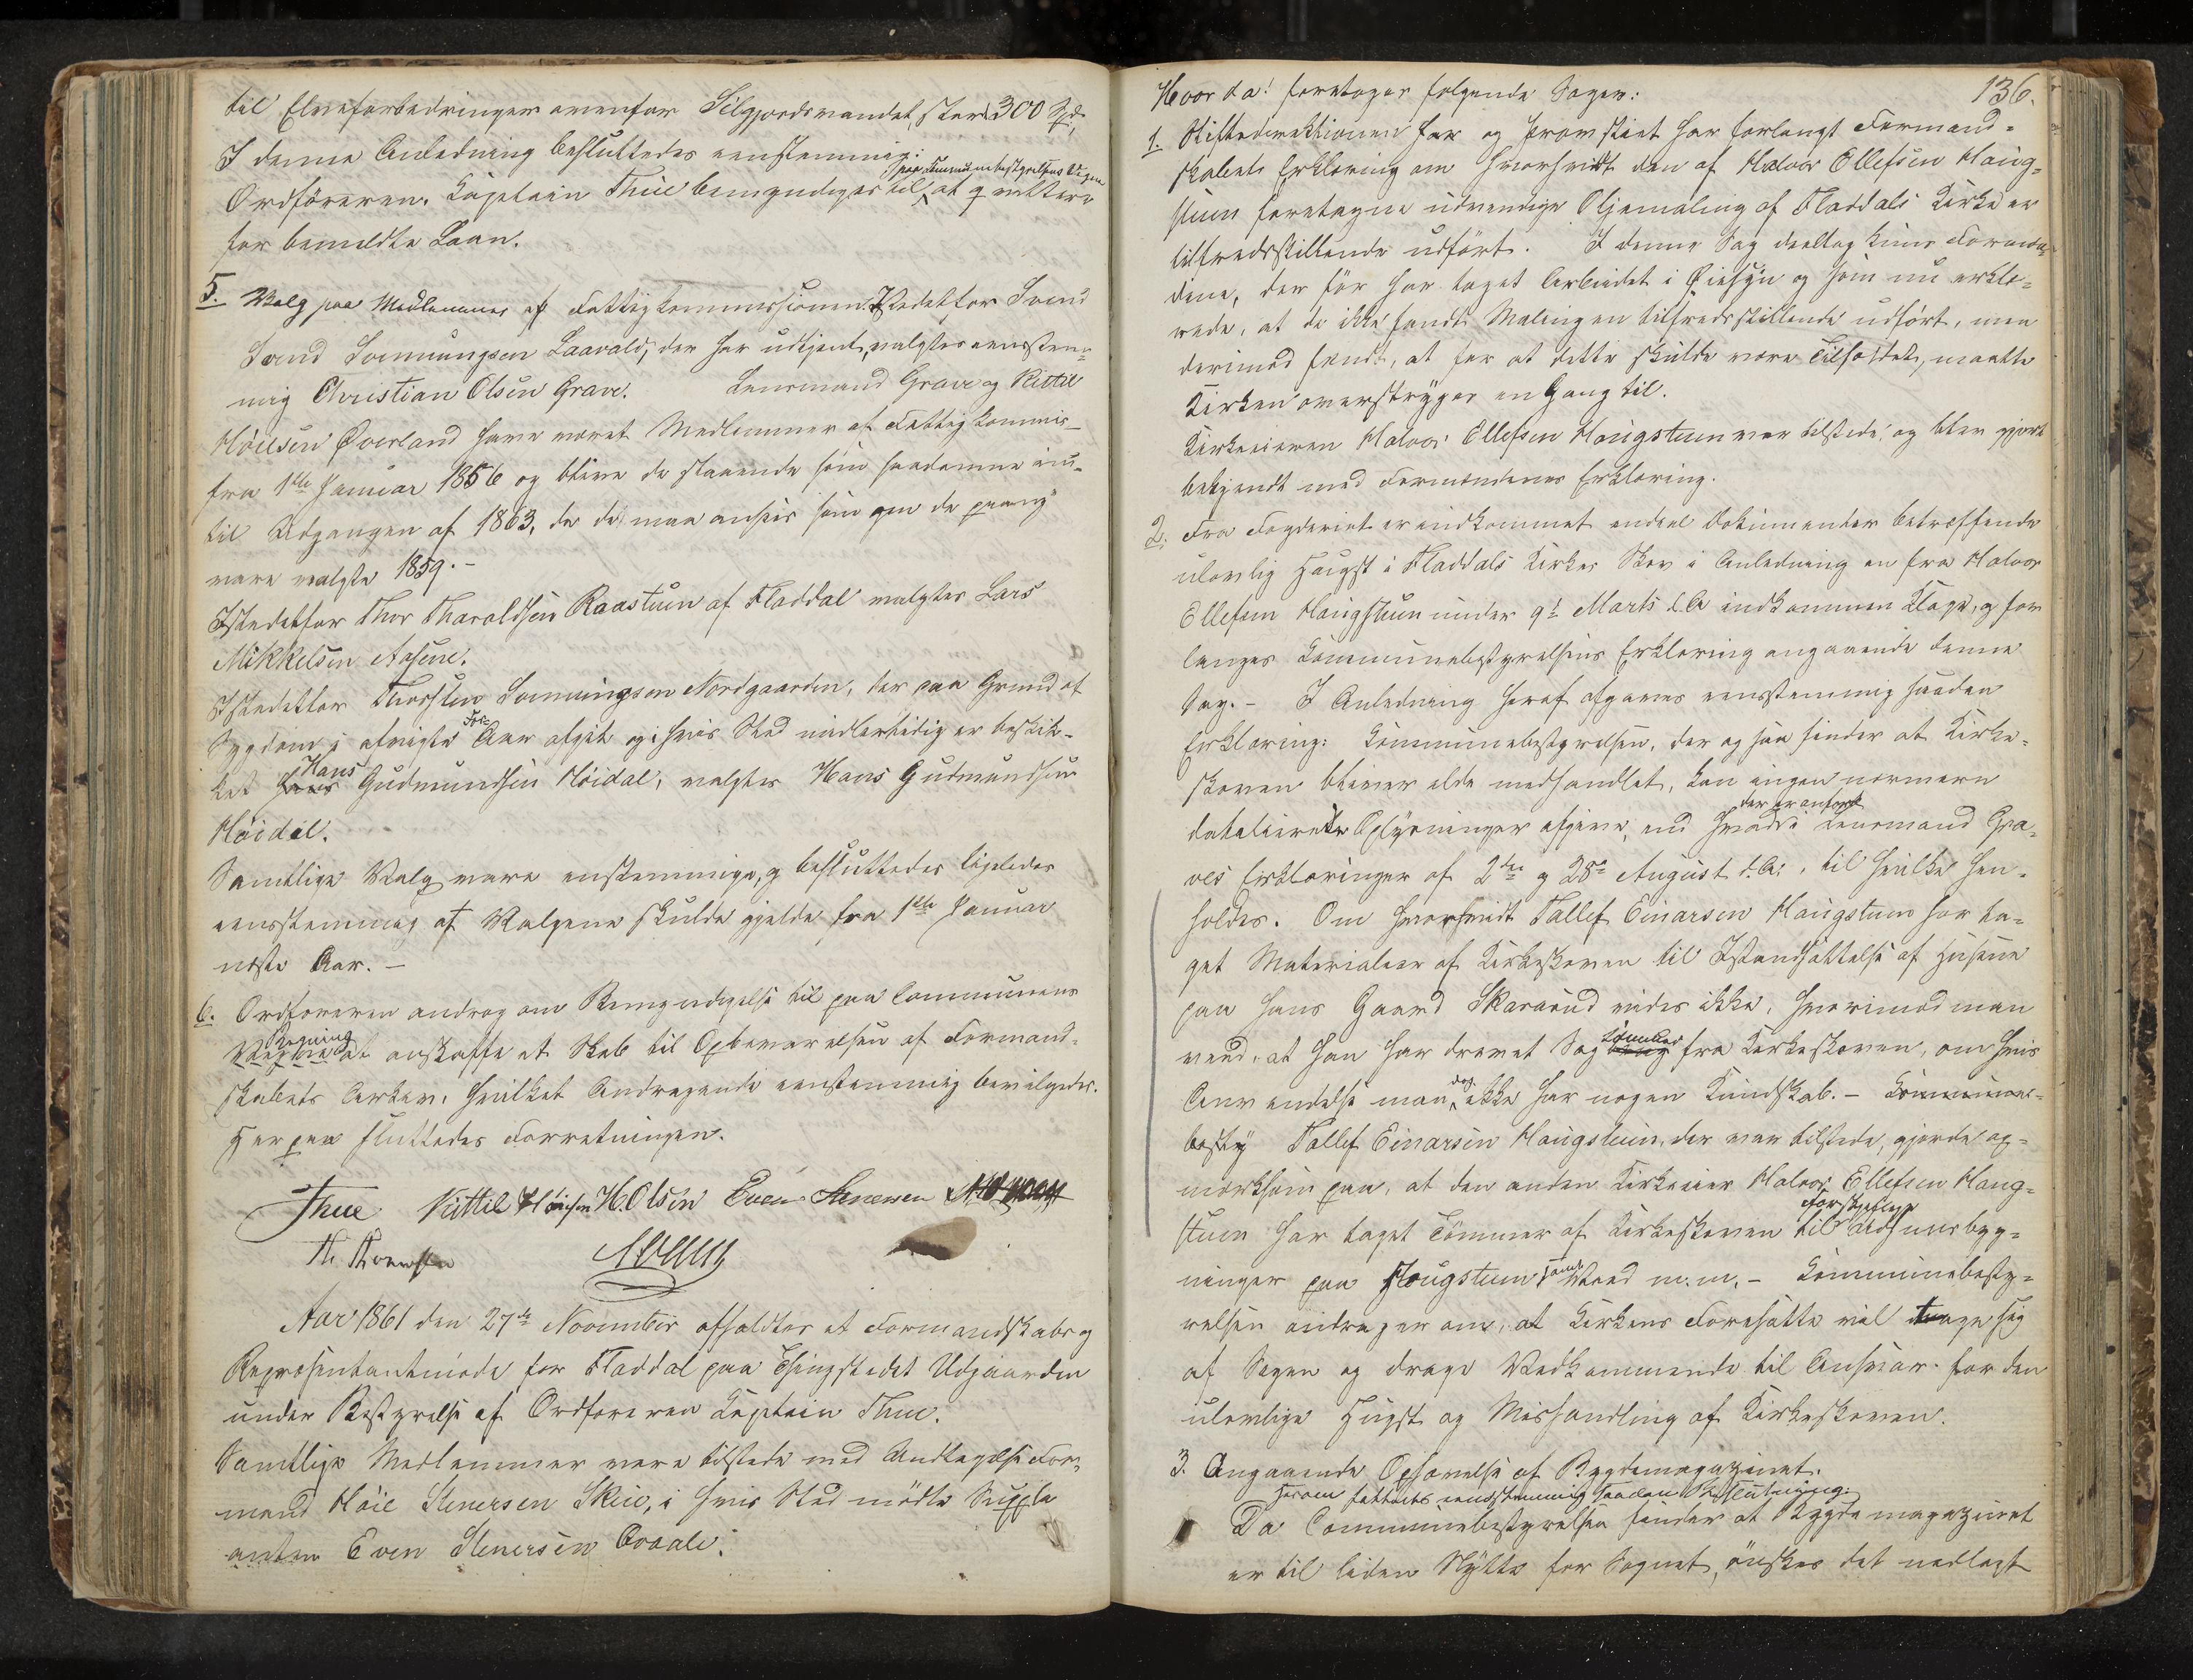 til Elveforbedringer ovenfor Siljordsvandet, stort 300 Spd.
I denne Anledning besluttedes eenstemmig:
Ordföreren, Kaptein Thue bemyndiges til paa Communebestyrelsens Vegne at qvittere
for bemeldte Laan.
5. Valg paa Medlemmer af Fattigkommissionen. Istedetfor Svend
Sond Sonmungsen Laavald, der har udtjent, valgtes eenstem-
mig Christian Olsen Grave. Lensmand Grave og Kittil
Höilsen Överland have været Medlemmer af Fattigkommis-
fra 1ste Januar 1856 og blive de staaende som saadanne ind-
til Udgangen af 1863, da de maa ansees som om de paany
vare valgte 1859. -
Istedetfor Thor Tharaldsen Raastuen af Fladdal valgtes Lars
Mikkelsen Aasene.
Istedetfor Thorsten Sonmingsen Nordgaarden, der paa Grund af
Sygdom i afvigte For-Aar afgik og i hvis Sted midlertidig er beskik-
ket Hans Gudmundsen Höidal, valgtes Hans Gudmundsen
Höidal.
Samtlige Valg vare enstemmige, og besluttedes ligeledes
eenstemmig at Valgene skulde gjelde fra 1ste Januar
næste Aar. -
6. Ordföreren androg om Bemyndigelse til paa Communens
Regning Vegne at anskaffe et Skab til Opbevarelsen af Formand-
skabets Arkiv, hvilket Andragende eenstemmig bevilgedes.
Herpaa sluttedes Forretningen.
Thue Kittil Höilsen H. Olsen Even Stenersen
Aar 1861 den 27de November afholdtes et Formandskabs og
Repræsentantmöde for Fladdal paa Thingstedet Udgaarden
under Bestyrelse af Ordföreren Kaptein Thue.
Samtlige Medlemmer vare tilstede med Undtagelse For-
mand Höie Stenersen Skeie, i hvis Sted mödte Supple
anten Even Stenersen Aavale.
136.
Hvorda! foretoges fölgende Sager:
1. Stiftsdirektionen har og Provstiet har forlangt Formand-
skabets Erklæring om hvorvidt den af Halvor Ellefsen Haug-
stuen foretagne udvendige Oljemaling af Fladdals Kirke er
tilfredsstillende udfört. I denne Sag deeltog kuns Formæn-
dene, der för har taget Arbeidet i Öiesyn og som nu erklæ-
rede, at de ikke fandt Malingen tilfredsstillende udfört, men
derimod fandt, at for at dette skulde være Tilfældet, maatte
Kirken overstryges en Gang til.
Kirkeeieren Halvor Ellefsen Haugstuen var tilstede, og blev gjort
bekjendt med Formændenes Erklæring.
2. Fra Fogderiet er indkommet endeel Dokumenter betræffende
ulovlig Haugst i Fladdals Kirkes Skov i Anledning en fra Halvor
Ellefsen Haugstuen under 9de Marts d. A. indkommen Klage, og for
langes Kommunebestyrelsens Erklæring angaaende denne
Sag. - I Anledning heraf afgaves eenstemmig saadan
Erklæring: Kommunebestyrelsen, der og saa finder at Kirke-
skoven bliver ilde medhandlet, kan ingen nærmere
detaljerede Oplysninger afgive, end hvad der er anfört i Lensmand Gra-
ves Erklæringer af 2den og 28de August d. A., til hvilke hen-
holdes. Om hvorvidt Tallef Einarsen Haugstuen har ta-
get Materialier af Kirkeskoven til Istandsættelse af Husene
paa hans Gaard Skararud vides ikke, hvorimod man
veed, at han har drevet Sagtömmer fra Kirkeskoven, om hvis
Anvendelse man dog ikke har nogen Kundskab. - Kommune-
besty Tallef Einarsen Haugstuen, der var tilstede, gjorde op-
mærksom paa, at den anden Kirkeeier Halvor Ellefsen Haug-
stuen har taget Tömmer af Kirkeskoven til forskjellige Udhuusbyg-
ninger paa Haugstuen samt Veed m.m. - Kommunebesty-
relsen andrager om, at Kirkens Foresatte vil tage sig
af Sagen og drage Vedkommende til Ansvar for den
ulovlige Hugst og Mishandling af Kirkeskoven.
3. Angaaende Ophævelse af Bygdemagazinet.
Herom fattedes eenstemmig saadan Beslutning:
Da Communebestyrelsen finder at Bygdemagazinet
er til liden Nytte for Sognet, önskes det nedlagt